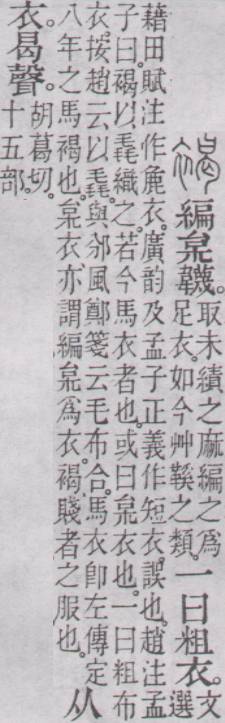 褐 編枲韤。取未績之𪎭編之爲足衣。如今艸鞵之類。一曰粗衣。文選
藉田賦注作麁衣。廣韵及孟子正義作短衣誤也。趙注孟
子曰。褐以毳織之。若今馬衣者也。或曰枲衣也。一曰粗布
衣。按趙云以毳。與邠風鄭箋云毛布合。馬衣卽左傳定
八年之馬褐也。枲衣亦謂編枲爲衣。褐賤者之服也。从
衣曷聲。胡葛切。十五部。